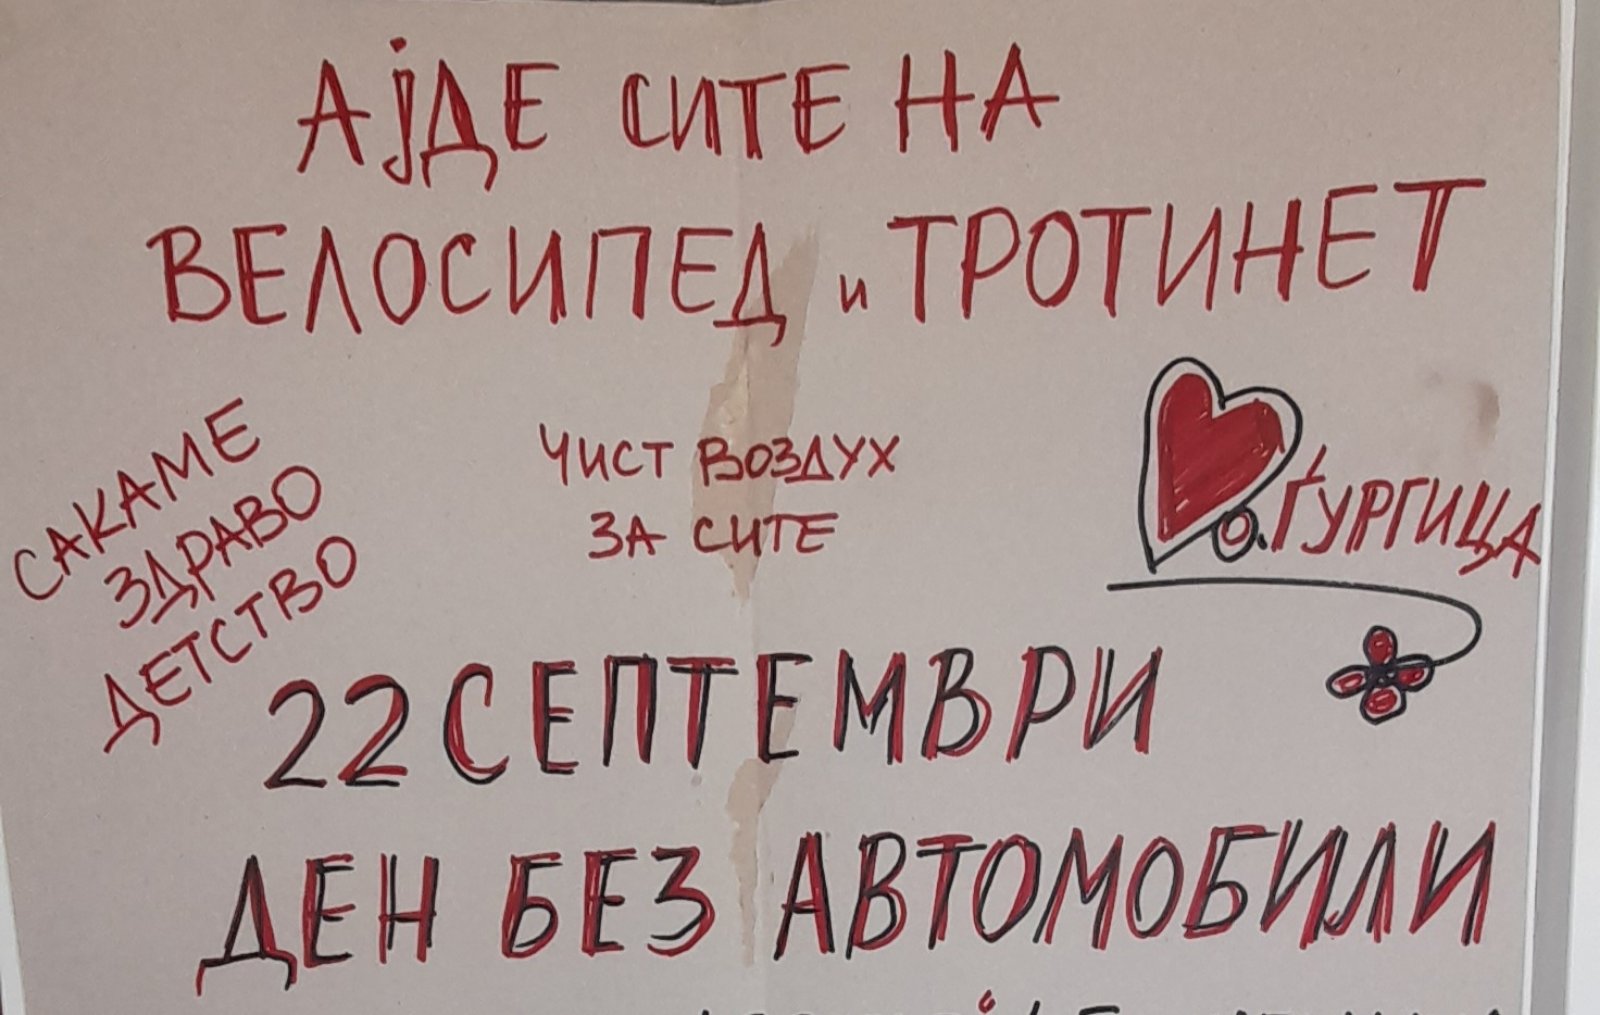 АЈДЕ СИТЕ НА
ВЕЛОСИПЕД и ТРОТИНЕТ
САКАМЕ
ЗДРАВО
ДЕТСТВО
ЧИСТ ВОЗДУХ
ЗА СИТЕ
ЃУРГИЦА
22 СЕПТЕМВРИ
ДЕН БЕЗ АВТОМОБИЛИ